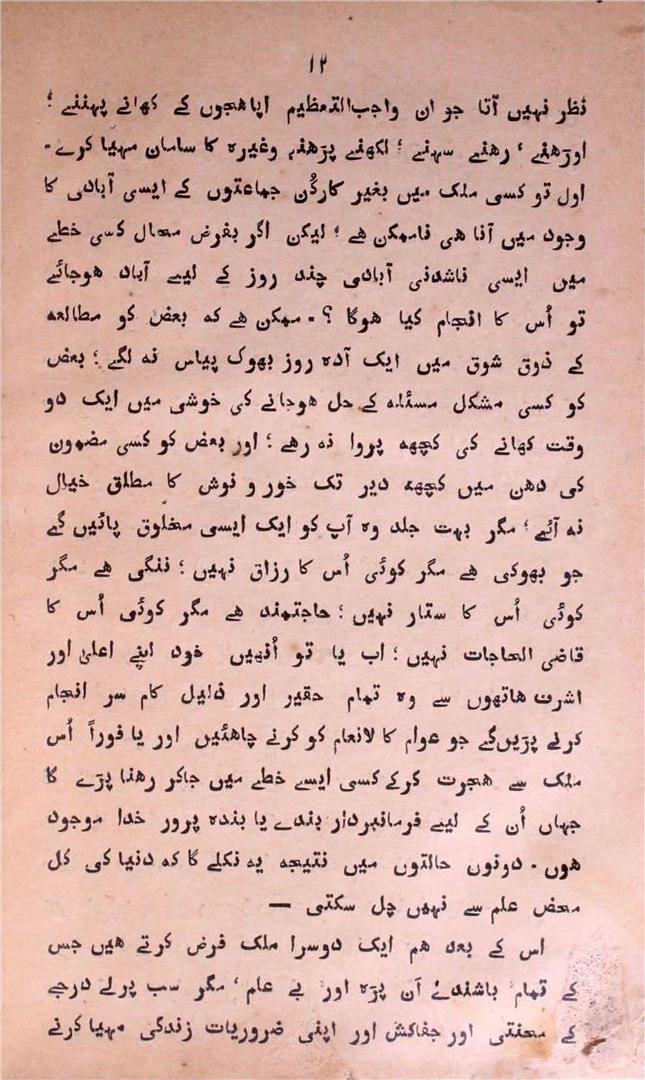 ۱۲
نظر نہیں آتا جو ان واجب‌التعظیم اپاهجوں کے کھانے پہننے ؛
اوڑھنے ، رهنے سہنے ؛ لکھنے پڑهنے وغیرہ کا سامان مہیا کرے ۔
اول تو کسی ملک میں بغیر کارکُن جماعتوں کے ایسی آبادی کا
وجود میں آنا هی ناممکن هے ؛ لیکن اگر بفرض محال کسی خطے
میں ایسی ناشدنی آبادی چند روز کے لیے آباد هوجائے
تو اُس کا انجام کیا هوگا ؟ ۔ ممکن هے کہ بعض کو مطالعہ
کے ذوق شوق میں ایک آدہ روز بھوک پیاس نہ لگے ؛ بعض
کو کسی مشکل مسئلہ کے حل هوجانے کی خوشی میں ایک دو
وقت کھانے کی کچھہ پروا نہ رهے ؛ اور بعض کو کسی مضمون
کی دهن میں کچھہ دیر تک خور و نوش کا مطلق خیال
نہ آئے ؛ مگر بہت جلد وہ آپ کو ایک ایسی مخلوق پائیں گے
جو بھوکی هے مگر کوئی اُس کا رزاق نہیں ؛ ننگی هے مگر
کوئی اُس کا ستار نہیں ؛ حاجتمند هے مگر کوئی اُس کا
قاضی الحاجات نہیں ؛ اب یا تو اُنھیں خود اپنے اعلیٰ اور
اشرف هاتھوں سے وہ تمام حقیر اور ذلیل کام سر انجام
کرنے پڑیں‌گے جو عوام کا لانعام کو کرنے چاهئیں اور یا فوراً اُس
ملک سے هجرت کرکے کسی ایسے خطے میں جاکر رهنا پڑے گا
جہاں اُن کے لیے فرمانبردار بندے یا بندہ پرور خدا موجود
هوں ۔ دونوں حالتوں میں نتیجہ یہ نکلے گا کہ دنیا کی کل
محض علم سے نہیں چل سکتی —
اس کے بعد هم ایک دوسرا ملک فرض کرتے هیں جس
کے تمام باشندے اَن پڑہ اور بے علم ، مگر سب پرلے درجے
کے محنتی اور جفاکش اور اپنی ضروریات زندگی مہیا کرنے